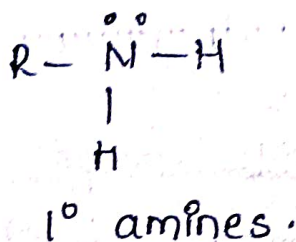 R – N̈ – H
|
H
1° amines.